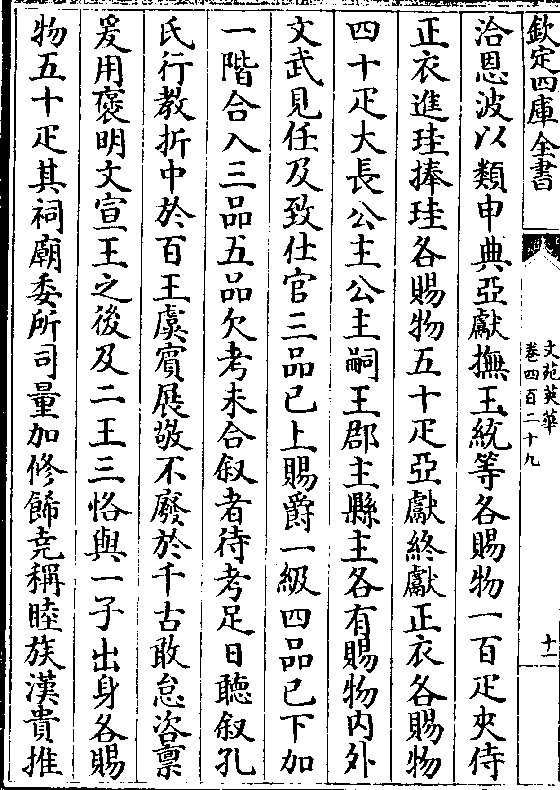 欽定四庫全書
文苑英華
卷四百二十九
十一
洽恩波以類申典亞獻撫王統等各賜物一百疋夾侍
正衣進珪捧珪各賜物五十疋亞獻終獻正衣各賜物
四十疋大長公主公主嗣王郡主縣主各有賜物内外
文武見任及致仕官三品已上賜爵一級四品已下加
一階合入三品五品欠考未合叙者待考足日聽叙孔
氏行教折中於百王虞賓展敬不廢於千古敢怠咨禀
爰用褒明文宣王之後及二王三恪與一子出身各賜
物五十疋其祠廟委所司量加修飾尭稱睦族漢貴推